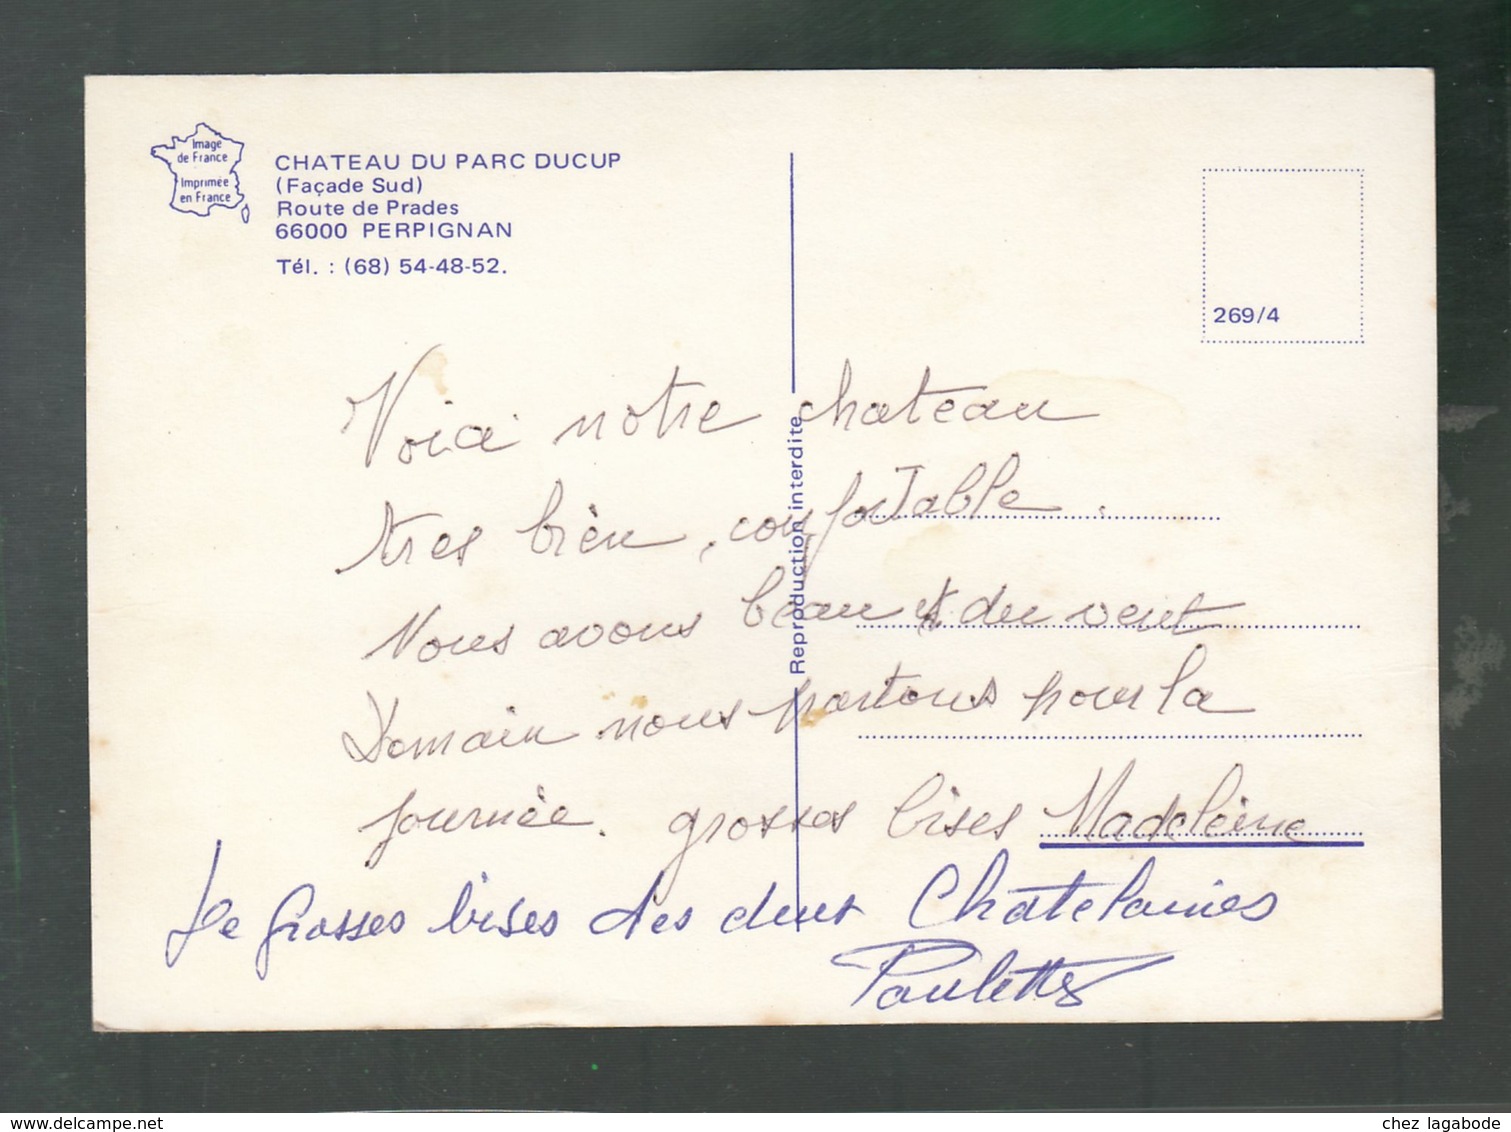 Image
de France
Imprimée
en France
CHATEAU DU PARC DUCUP
(Façade Sud)
Route de Prades
66000 PERPIGNAN
Tél. : (68) 54-48-52.
269/4
Reproduction interdite
Voici notre chateau
tres bien, confortable.
Nous avons beau et du vent
Demain nous partons pour la
journée. grosses bises Madeleine
De Grosses bises des deux Chatelaines
Paulette
www.delcampe.net
chez lagabode